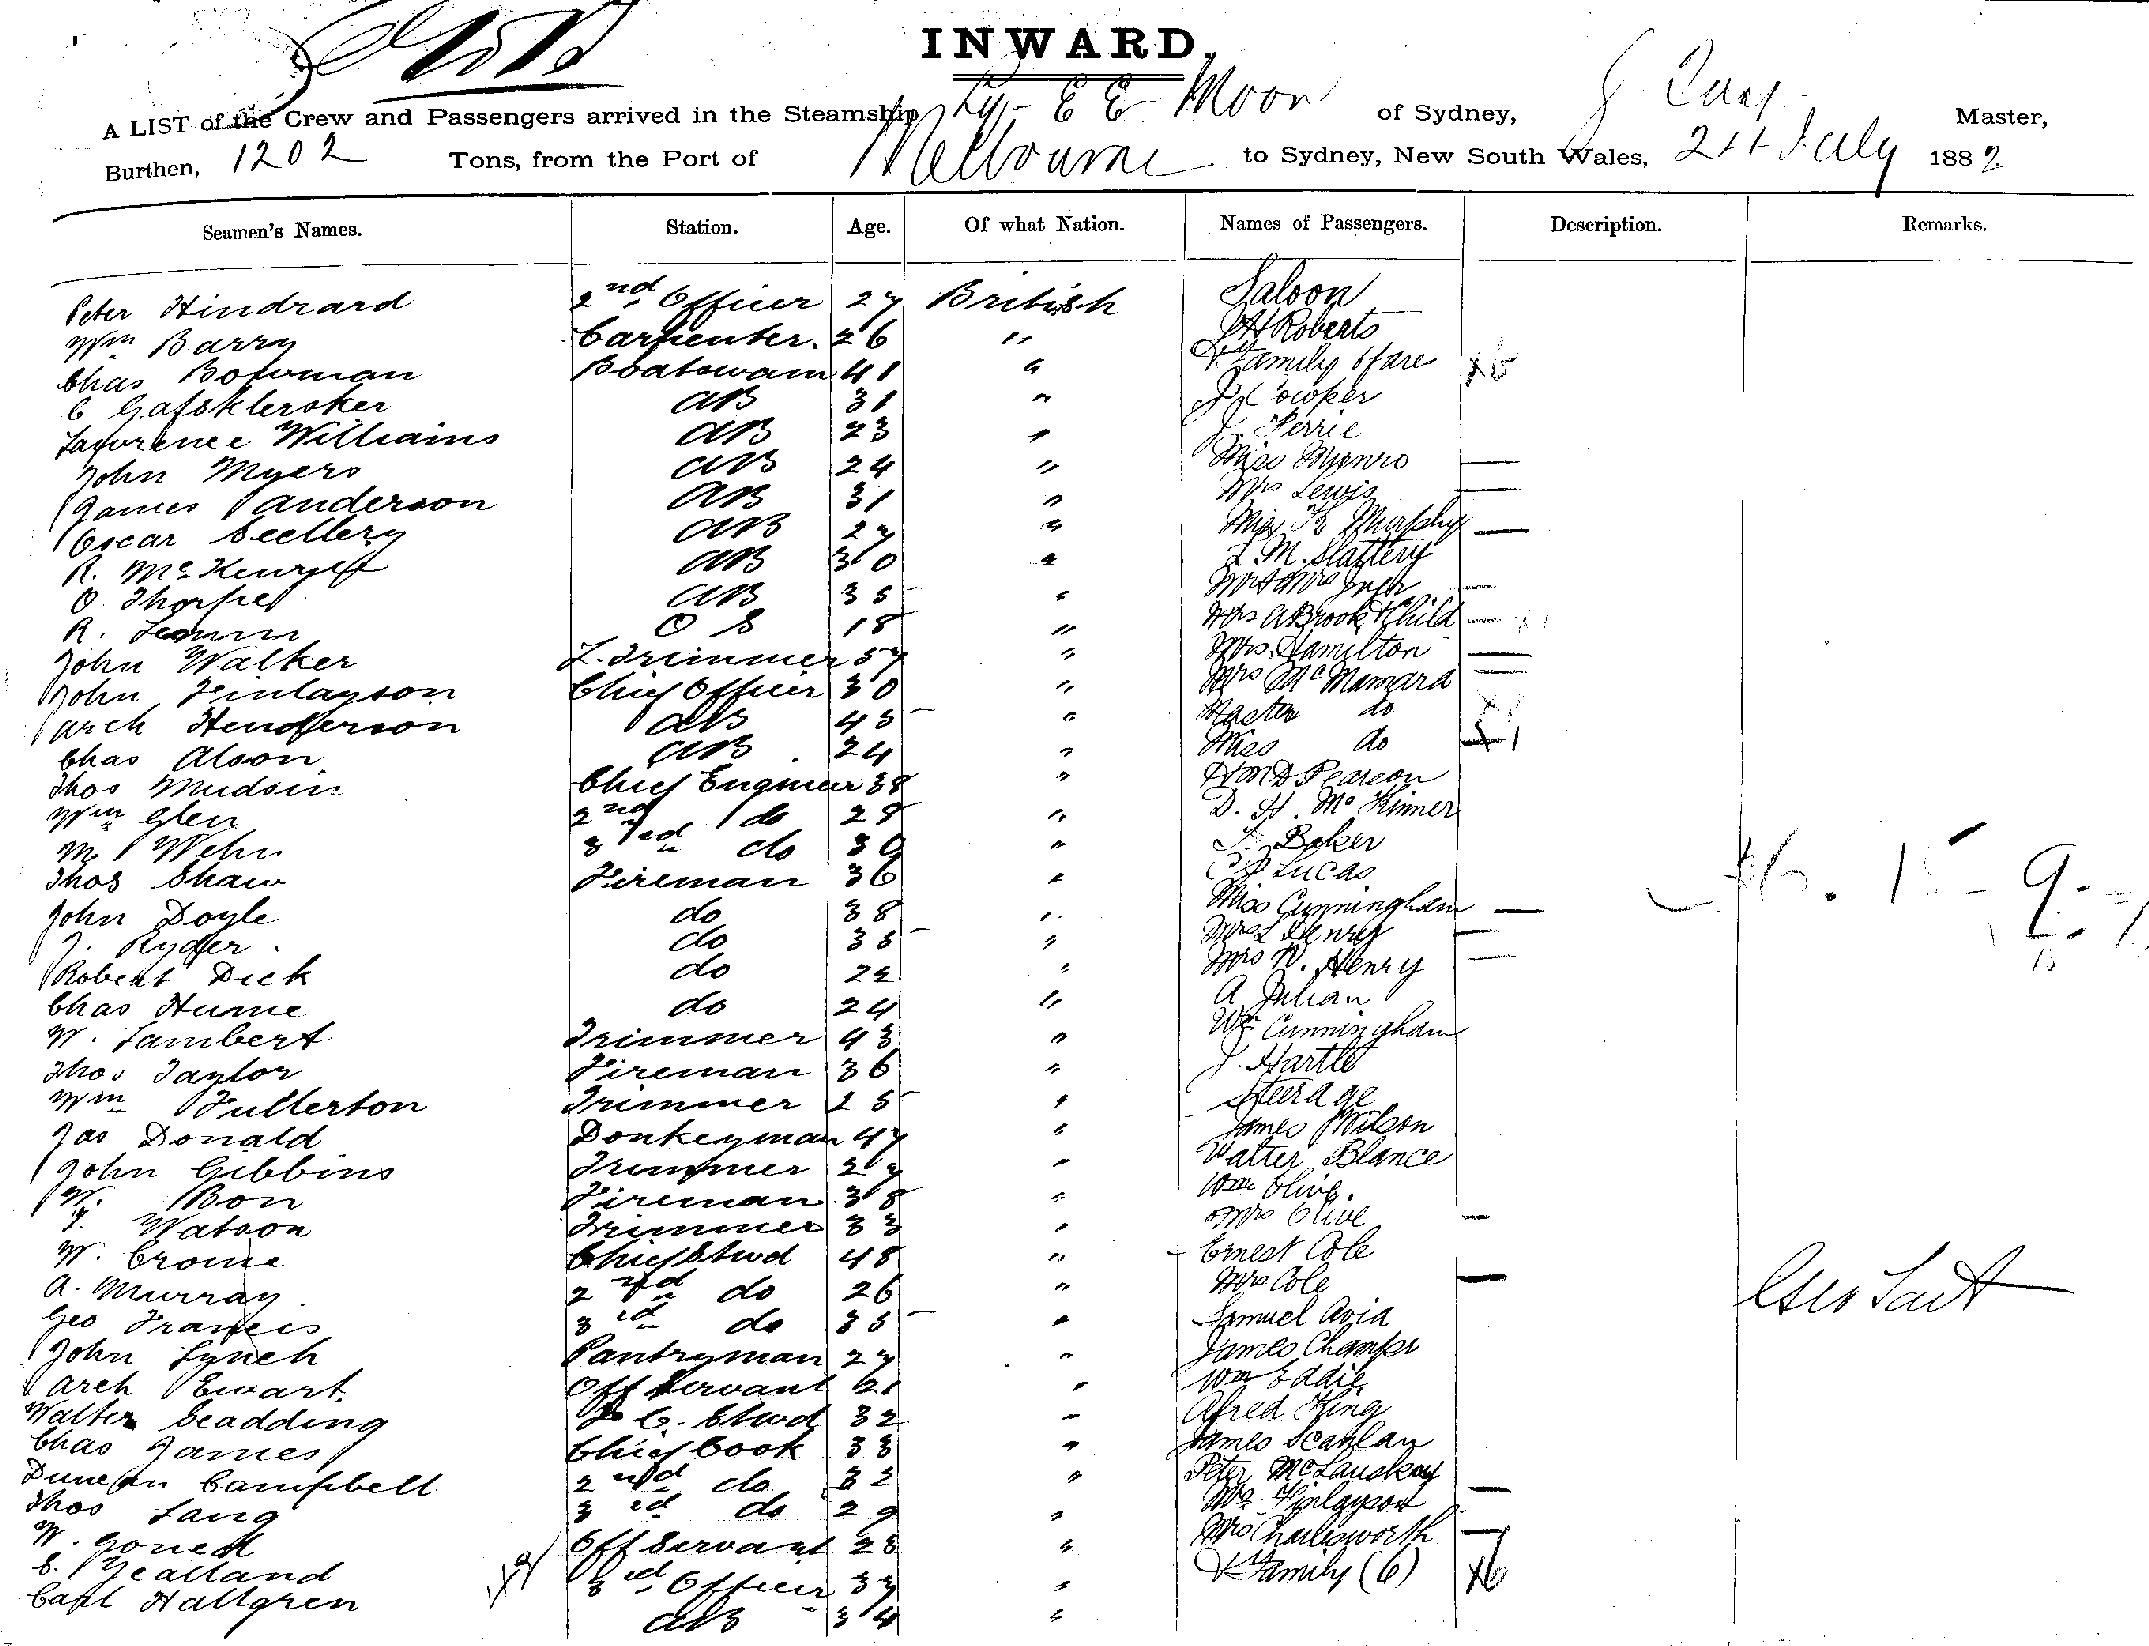 INWARD.
A LIST of the Crew and Passengers arrived in the Steamship Ly- E E Moon of Sydney, Master,
Burthen, 1202 Tons, from the Port of Melbourne to Sydney, New South Wales, 21st July 1882
Seamen's Names. Station. Age. Of what Nation. Names of Passengers. Description. Remarks.
Peter Hindrard 2nd Officer 27 British Saloon
Wm Barry Carpenter. 26 " J H Roberts
Chas Bowman Boatswain 41 " & Family 6 fare x6
C AB 31 " J Cooper
Lawrence Williams AB 23 " J. Ferrie
John Myers AB 24 " Miss Munro
James Anderson AB 31 " Mrs Lewis
Oscar AB 27 " Miss K Murphy
R. AB 30 " L. M. Slattery
O. Thorpe AB 35 " Mr & Mrs
R. O S 18 " Mrs A Brook & Child
John Walker L. Trimmer 57 " Mrs. Hamilton
John Finlayson Chief Officer 30 " Mrs McMamara
Arch Henderson AB 45 " Master do
Chas Alson AB 24 " Miss do x1
Thos Mudsin Chief Engineer 38 " Pearson
Wm Glen 2nd do 28 " D. H. McKinner
M Wehn 3rd do 30 " Baker
Thos Shaw Fireman 36 " Lucas
John Doyle do 38 " Miss Cunningham
J. Ryder do 35 " Mrs L Henry
Robert Dick do 22 " Mrs W. Henry
Chas Hume do 24 " A Julian
W. Lambert Trimmer 43 " Wm Cunningham
Thos Taylor Fireman 36 " J. Hartle
Wm Fullerton Trimmer 25 " Steerage
Jas Donald Donkeyman 47 " James Wilson
John Gibbins Trimmer 27 " Walter Blance
W. Bon Fireman 38 " Wm Clive.
J. Watson Trimmer 33 " Mrs Clive
W. Crome Chief Stwd 48 " Ernest Cole
A. Murray 2nd do 26 " Mrs Cole
Geo Francis 3rd do 35 " Samuel Avia
John Lynch Pantryman 27 " James Champs
Arch Ewart Off Servant 21 " Wm Eddie
Walter Ceadding F C. Stwd 32 " Alfred King
Chas James Chief Cook 33 " James Scanlan
Duncan Campbell 2nd do 32 " Peter
Thos Lang 3rd do 29 " Mrs Finlayson
W. Jones Off Servant 28 " Mrs Charlesworth
S. Yealland 3rd Officer 37 " & Family (6) x6
Carl Hallgren AB 34 "